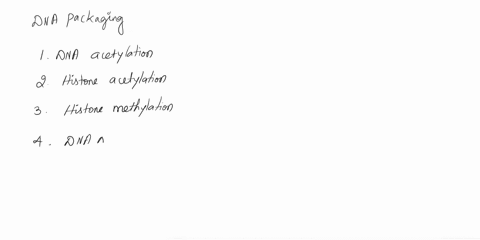 DNA packaging
1. DNA acetylation
2. Histone acetylation
3. Histone methylation
4. DNA